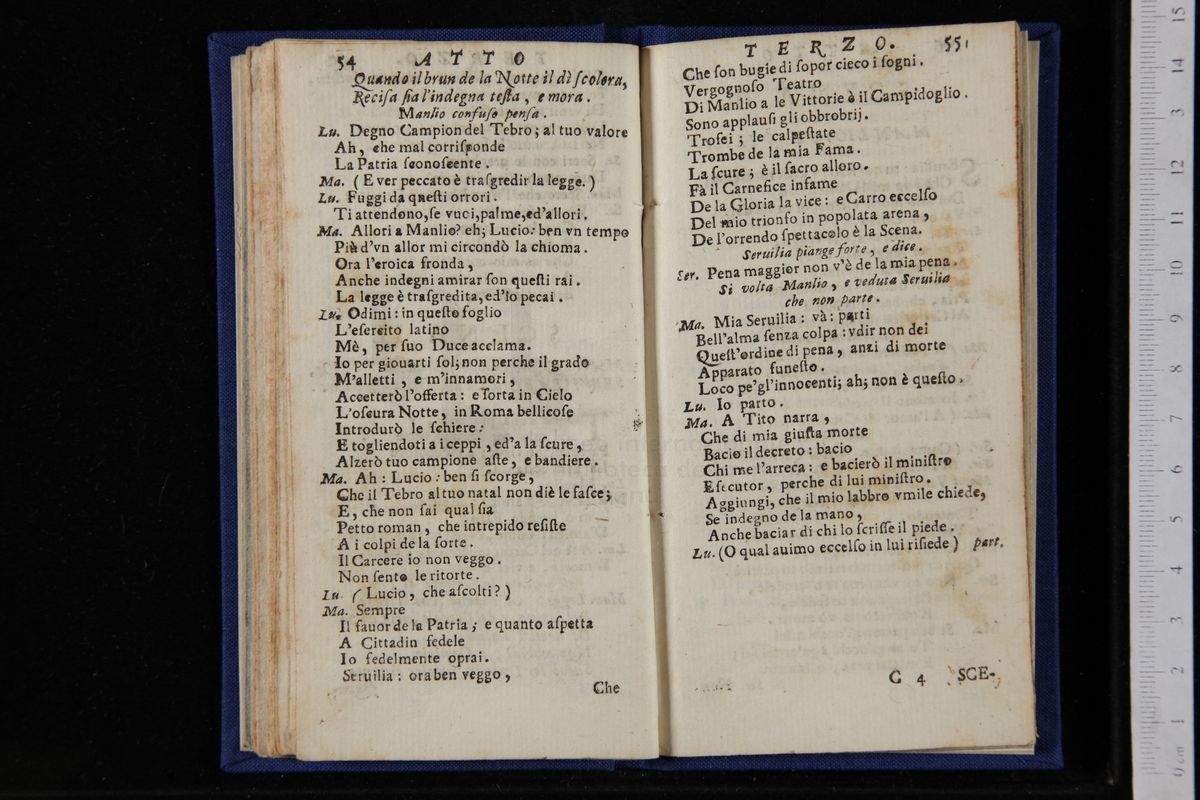 54 ATTO
Quando il brun de la Notte il dì ſcolora,
Reciſa ſia l'indegna teſta, e mora.
Manlio confuſo penſa.
Lu. Degno Campion del Tebro; al tuo valore
Ah, che mal corriſponde
La Patria ſconoſcente.
Ma. (E ver peccato è traſgredir la legge.)
Lu. Fuggi da queſti orrori.
Ti attendono, ſe vuoi, palme, ed'allori.
Ma. Allori a Manlio? eh; Lucio: ben vn tempo
Più d'vn allor mi circondò la chioma.
Ora l'eroica fronda,
Anche indegni amirar ſon queſti rai.
La legge è traſgredita, ed'io pecai.
Lu. Odimi: in queſto foglio
L'eſercito latino
Mè, per ſuo Duce acclama.
Io per giouarti ſol; non perche il grado
M'alletti, e m'innamori,
Accetterò l'offerta: e ſorta in Cielo
L'oſcura Notte, in Roma bellicoſe
Introdurò le ſchiere:
E togliendoti a i ceppi, ed'a la ſcure,
Alzerò tuo campione aſte, e bandiere.
Ma. Ah: Lucio: ben ſi ſcorge,
Che il Tebro al tuo natal non diè le faſce;
E, che non ſai qual ſia
Petto roman, che intrepido reſiſte
A i colpi de la ſorte.
Il Carcere io non veggo.
Non ſento le ritorte.
Lu. (Lucio, che aſcolti?)
Ma. Sempre
Il fauor de la Patria; e quanto aſpetta
A Cittadin fedele
Io fedelmente oprai.
Seruilia: ora ben veggo,
Che
TERZO. 55
Che ſon bugie di ſopor cieco i ſogni.
Vergognoſo Teatro
Di Manlio a le Vittorie è il Campidoglio.
Sono applauſi gli obbrobrij.
Trofei; le calpeſtate
Trombe de la mia Fama.
La ſcure; è il ſacro alloro.
Fà il Carnefice infame
De la Gloria la vice: e Carro eccelſo
Del mio trionfo in popolata arena,
De l'orrendo ſpettacolo è la Scena.
Seruilia piange forte, e dice.
Ser. Pena maggior non v'è de la mia pena.
Si volta Manlio, e veduta Seruilia
che non parte.
Ma. Mia Seruilia: và: parti
Bell'alma ſenza colpa: vdir non dei
Queſt'ordine di pena, anzi di morte
Apparato funeſto.
Loco pe'gl'innocenti; ah; non è queſto.
Lu. Io parto.
Ma. A Tito narra,
Che di mia giuſta morte
Bacio il decreto: bacio
Chi me l'arreca: e bacierò il miniſtro
Eſecutor, perche di lui miniſtro.
Aggiungi, che il mio labbro vmile chiede,
Se indegno de la mano,
Anche baciar di chi lo ſcriſſe il piede.
Lu. (O qual auimo eccelſo in lui riſiede) part.
C 4 SCE-